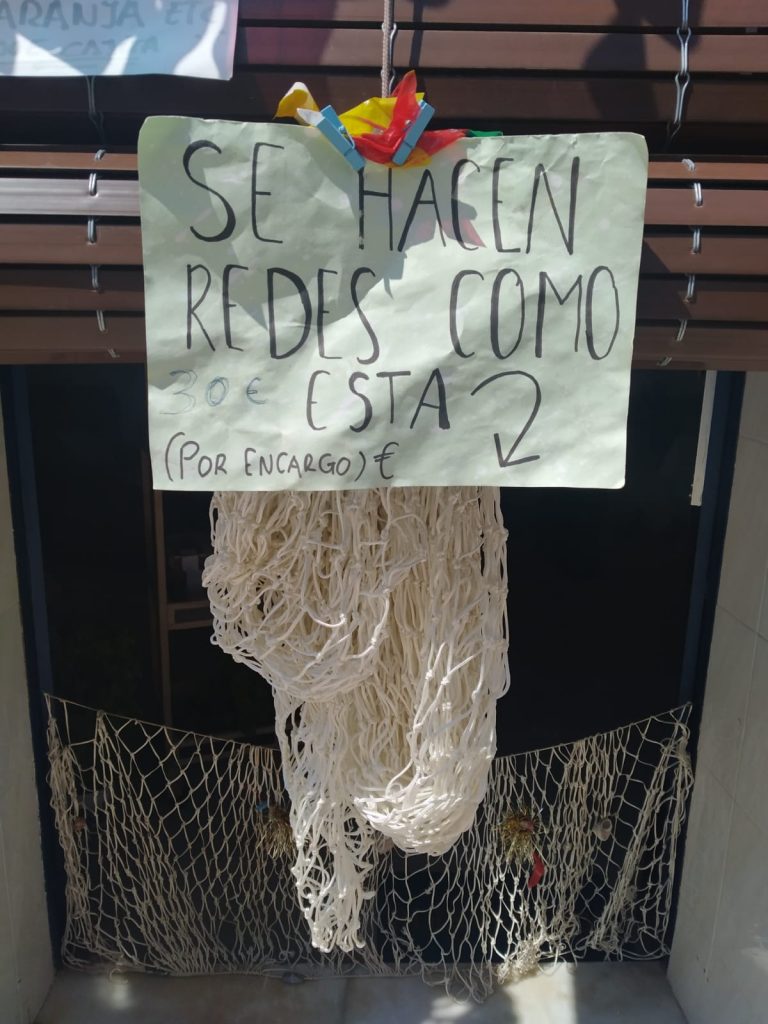 ARANJA ETC
SE HACEN
REDES COMO
30€ ESTA
(POR ENCARGO) €